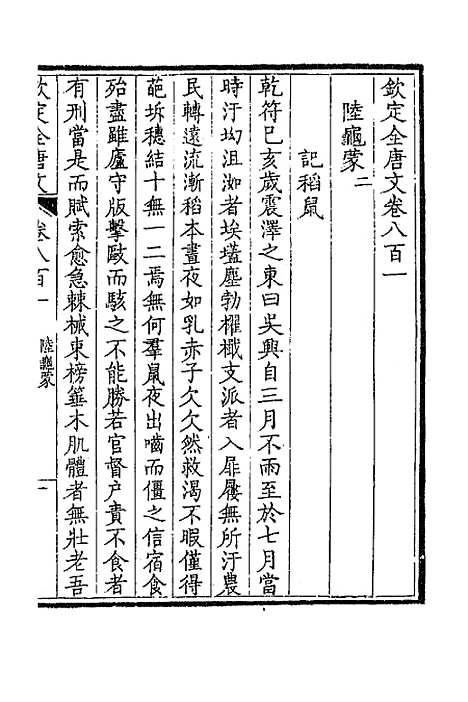 欽定全唐文卷八百一
陸龜蒙二
記稻鼠
乾符己亥歲震澤之東曰吳興自三月不雨至於七月當
時汙坳沮洳者埃𡏖塵勃櫂檝支派者入屝屨無所汙農
民轉遠流漸稻本晝夜如乳赤子欠欠然救渴不暇僅得
葩坼穗結十無一二焉無何羣鼠夜出嚙而僵之信宿食
殆盡雖廬守版擊毆而駭之不能勝若官督户責不食者
有刑當是而賦索愈急棘械束榜箠木肌體者無壯老吾
欽定全唐文
卷八百一
陸龜蒙
一